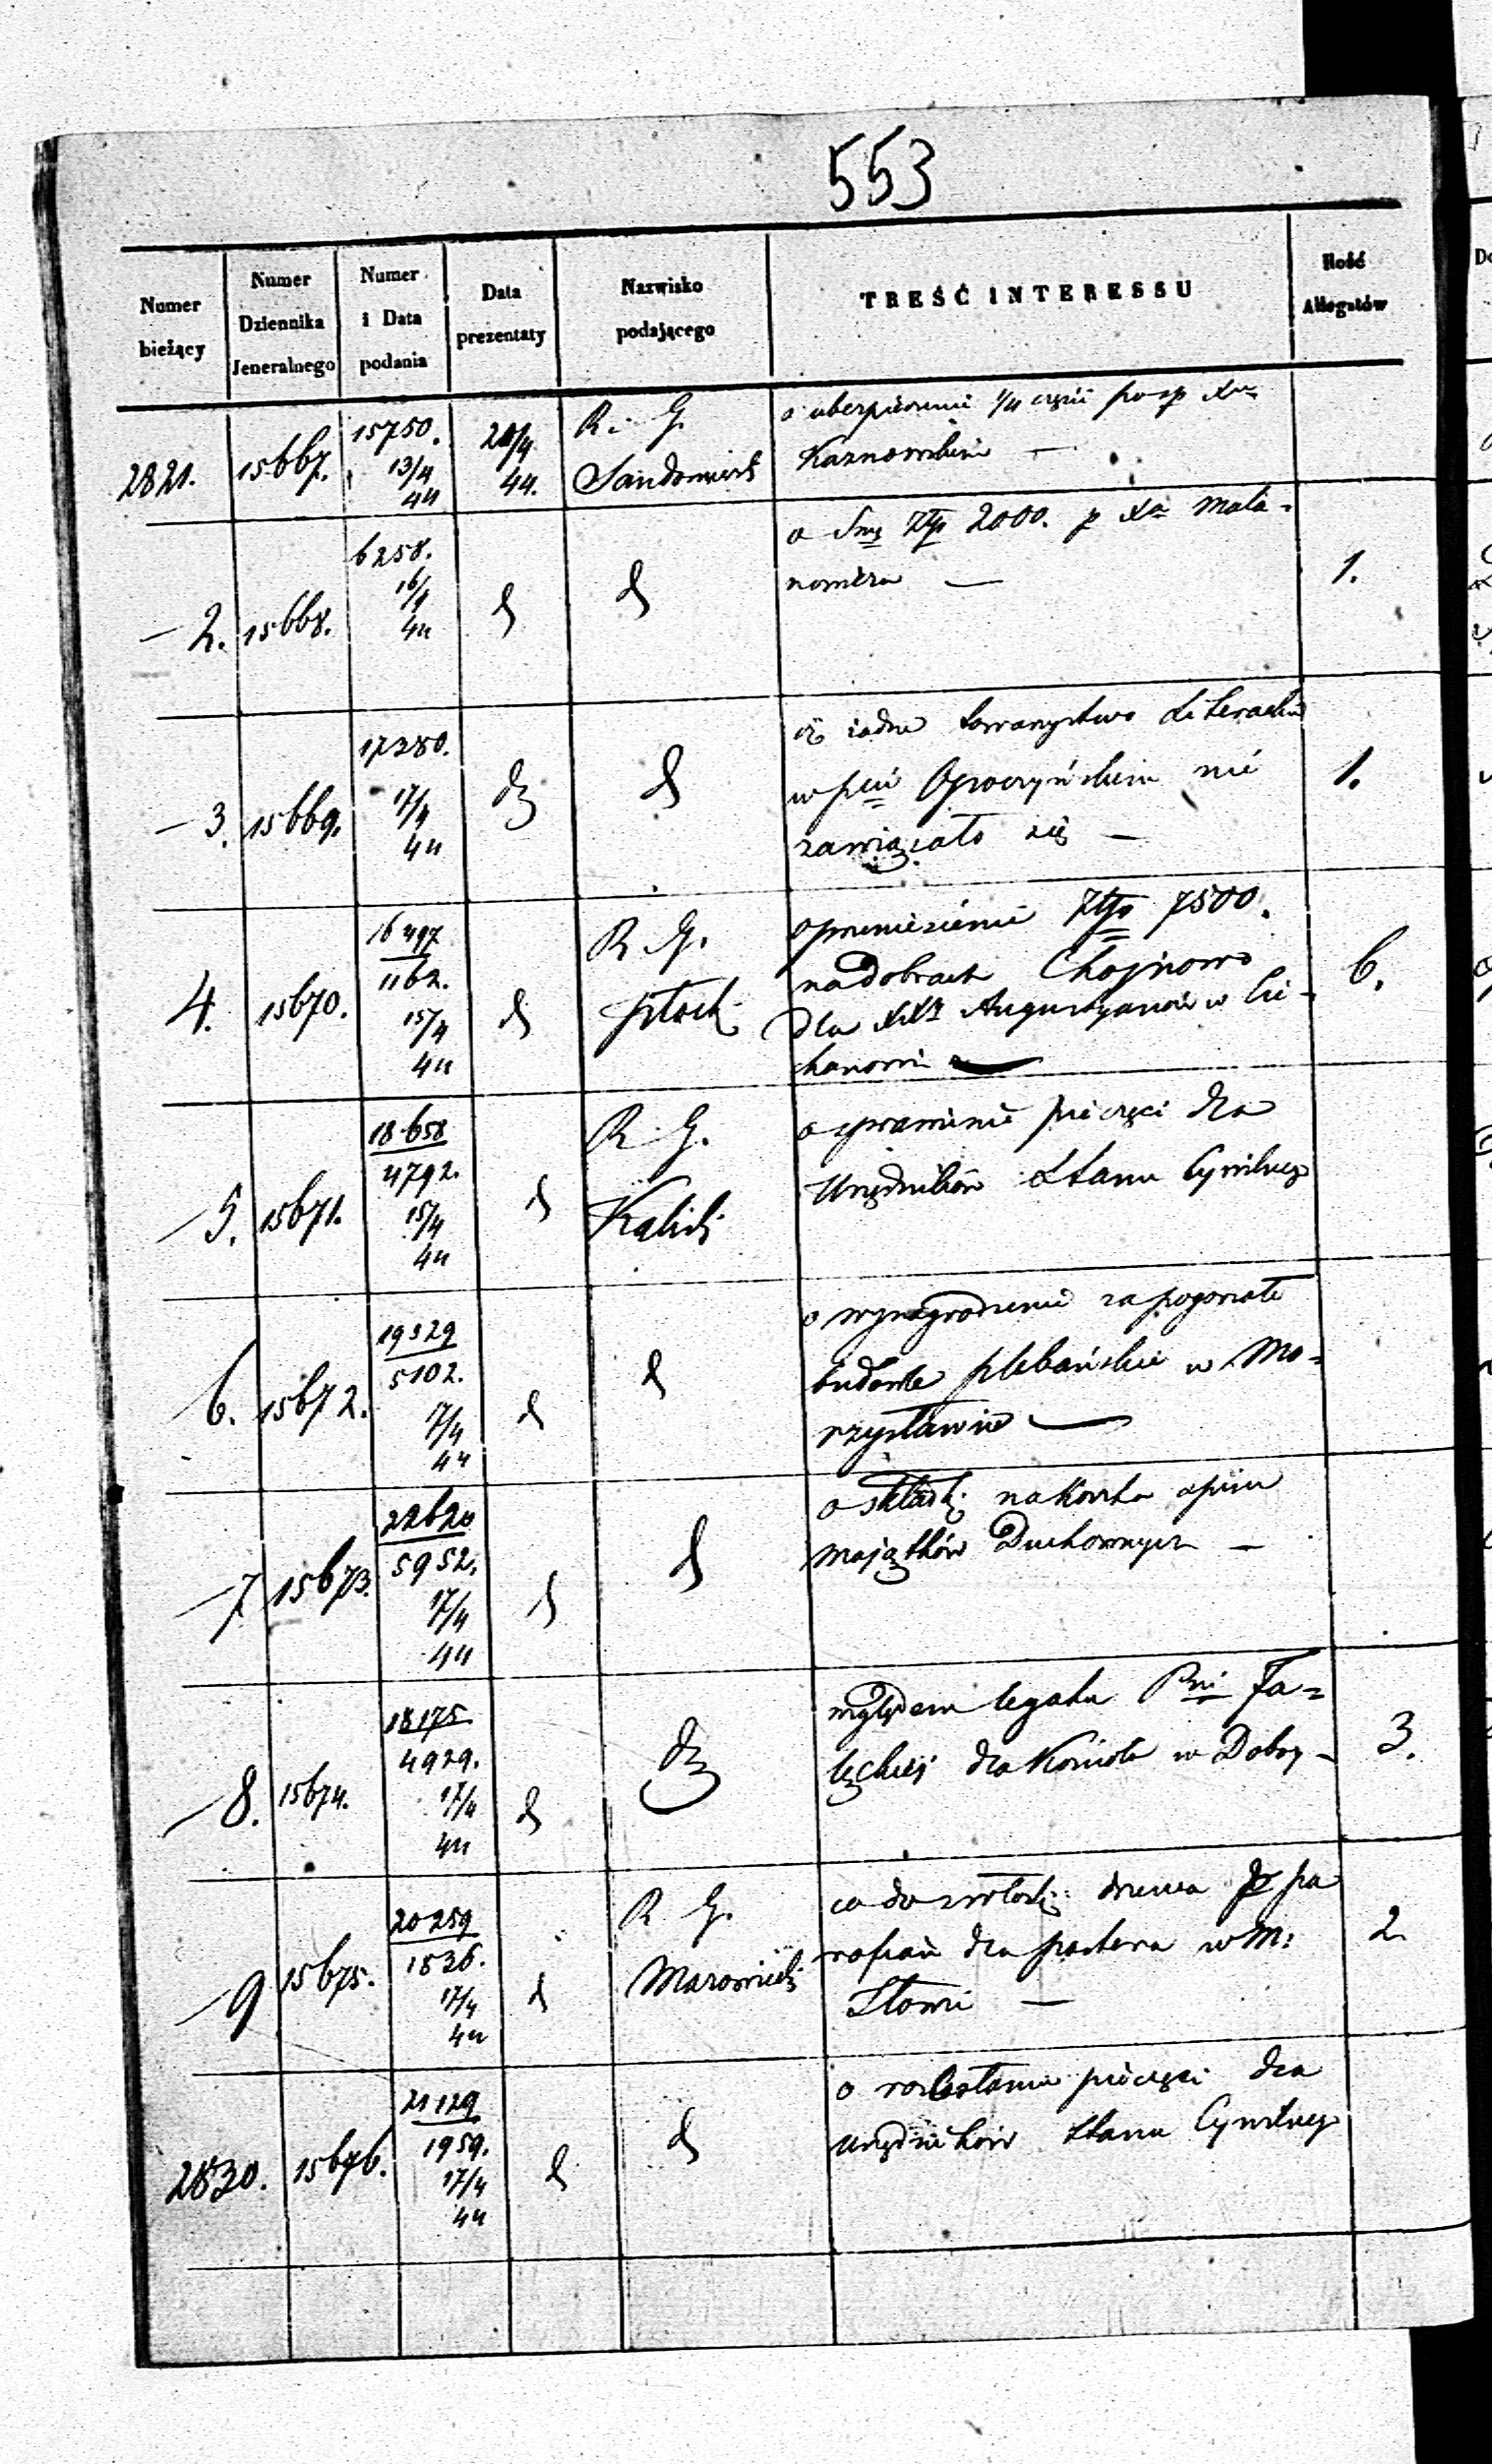 553
Numer bieżący
Numer Dziennika Jeneralnego
Numer i Data podania
Data prezentaty
Nazwisko podającego
TREŚĆ INTERESSU
Ilość Allegatów
2821. 15667. 15750. 13/4 44 20/4 44. R. G. Sandomirs
o ubezpieczenie 1/4 części po
2. 15668. 6258. 16/4 44
o Smę Złp 2000. p Xa Mala-
1.
3. 15669. 17280. 17/4 44
iż żadne towarzystwo Literackie
w pcie Opoczyńskim nie
zawiązało się —
1.
4. 15670. 16497 1162. 15/4 44 R. G. Płock
o przeniesienie Złp 7500.
na dobrach Chojnowo
dla XXy Augustyanów w Cie-
chanowie
6.
5. 15671. 18658 4792. 15/4 44 R. G. Kalisk
o sprawienie pieczęci dla
Urzędników Stanu Cywilnego
6. 15672. 19329 5102. 17/4 44
o wynagrodzenie za pogorzałe
budowle plebańskie w Mo-
rzysławiu —
7. 15673. 22620 5952. 17/4 44
o składk: na koszta spisu
majątków Duchownych —
8. 15674. 18175 4929. 17/4 44
względem legatu Pni Fa-
lęckiej dla Kościoła w Dobrz-
3.
9 15675. 20259 1836. 17/4 44 R. G. Mazowieck
co do zwłoki drzewa p pa
rafian dla pastora w M:
Iłowie —
2.
2830. 15676. 21129 1959. 17/4 44
o rozesłanie pieczęci dla
urzędników Stanu Cywilnego